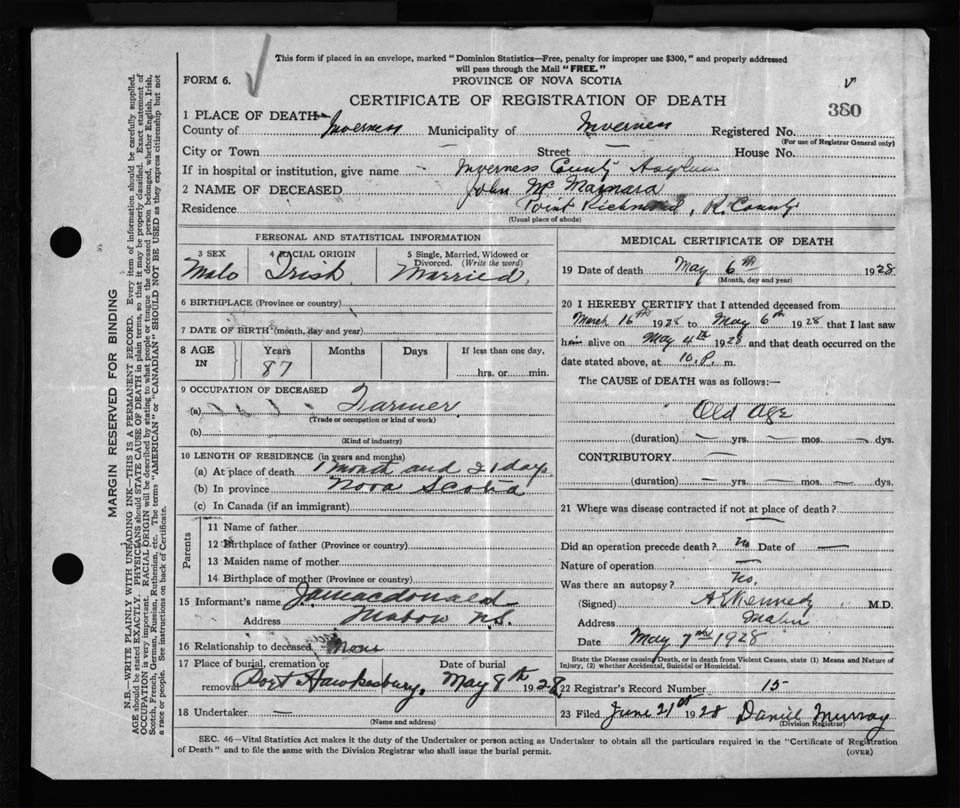 This form if placed in an envelope, marked "Dominion Statistics—Free, penalty for improper use $300," and properly addressed
will pass through the Mail "FREE."
FORM 6.
PROVINCE OF NOVA SCOTIA
380
CERTIFICATE OF REGISTRATION OF DEATH
1 PLACE OF DEATH—
County of Inverness Municipality of Inverness Registered No.
(For use of Registrar General only)
City or Town Street — House No.
If in hospital or institution, give name Inverness County Asylum
2 NAME OF DECEASED John Mc
Residence Point Richmond, R. County
(Usual place of abode)
PERSONAL AND STATISTICAL INFORMATION
3 SEX 4 RACIAL ORIGIN 5 Single, Married, Widowed or
Divorced. (Write the word)
Male Irish Married
6 BIRTHPLACE (Province or country)
7 DATE OF BIRTH (month, day and year)
8 AGE IN Years Months Days If less than one day,
87 hrs. or min.
9 OCCUPATION OF DECEASED
(a) Farmer
(Trade or occupation or kind of work)
(b)
(Kind of industry)
10 LENGTH OF RESIDENCE (in years and months)
(a) At place of death 1 month and 21 days
(b) In province Nova Scotia
(c) In Canada (if an immigrant)
Parents
11 Name of father
12 Birthplace of father (Province or country)
13 Maiden name of mother
14 Birthplace of mother (Province or country)
15 Informant's name J. A. Macdonald
Address Mabou N.S.
16 Relationship to deceased None
17 Place of burial, cremation or Date of burial
removal Port Hawkesbury, May 8th 1928
18 Undertaker —
(Name and address)
MEDICAL CERTIFICATE OF DEATH
19 Date of death May 6th 1928
(Month, day and year)
20 I HEREBY CERTIFY that I attended deceased from
March 16th 1928 to May 6th 1928 that I last saw
him alive on May 4th 1928 and that death occurred on the
date stated above, at 10. P. m.
The CAUSE of DEATH was as follows:—
Old Age
(duration) — yrs. — mos. — dys.
CONTRIBUTORY —
(duration) — yrs. — mos. — dys.
21 Where was disease contracted if not at place of death?
Did an operation precede death? No Date of —
Nature of operation —
Was there an autopsy? No.
(Signed) Kennedy M.D.
Address Mabou
Date May 7 1928
State the Disease causing Death, or in death from Violent Causes, state (1) Means and Nature of
Injury, (2) whether Accidental, Suicidal or Homicidal.
22 Registrar's Record Number 15
23 Filed June 21st 1928 Daniel Murray
(Division Registrar)
SEC. 46—Vital Statistics Act makes it the duty of the Undertaker or person acting as Undertaker to obtain all the particulars required in the "Certificate of Registration
of Death" and to file the same with the Division Registrar who shall issue the burial permit.
(OVER)
MARGIN RESERVED FOR BINDING
N.B.—WRITE PLAINLY WITH UNFADING INK—THIS IS A PERMANENT RECORD. Every item of information should be carefully supplied.
AGE should be stated EXACTLY. PHYSICIANS should STATE CAUSE OF DEATH in plain terms, so that it may be properly classified. Exact statement of
OCCUPATION is very important. RACIAL ORIGIN will be described by stating to what people or tongue the deceased person belonged, whether English, Irish,
Scotch, French, German, Russian, Ruthenian, etc. The terms "AMERICAN" or "CANADIAN" SHOULD NOT BE USED as they express citizenship but not
a race or people. See instructions on back of Certificate.